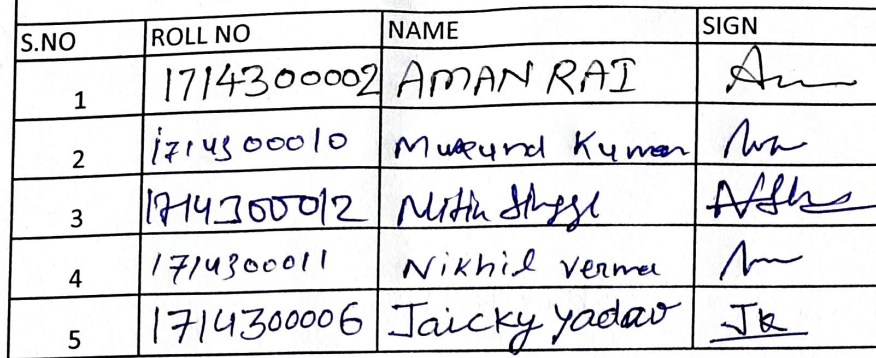 S.NO ROLL NO NAME SIGN
1 1714300002 AMAN RAI
2 1714300010 Mukund Kumar
3 1714300012 Nitin
4 1714300011 Nikhil Verma
5 1714300006 Jaicky Yadav